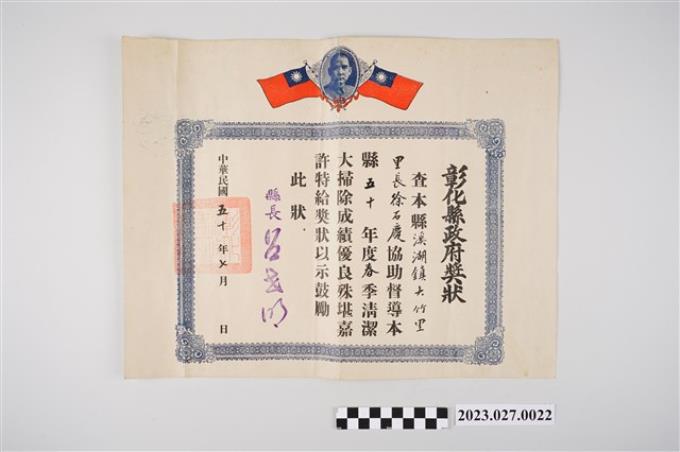 彰化縣政府獎狀
查本縣溪湖鎮大竹里
里長徐石慶協助督導本
縣五十年度春季清潔
大掃除成績優良殊堪嘉
許特給獎狀以示鼓勵
此狀.
縣長呂世明
中華民國五十年七月 日
2023.027.0022